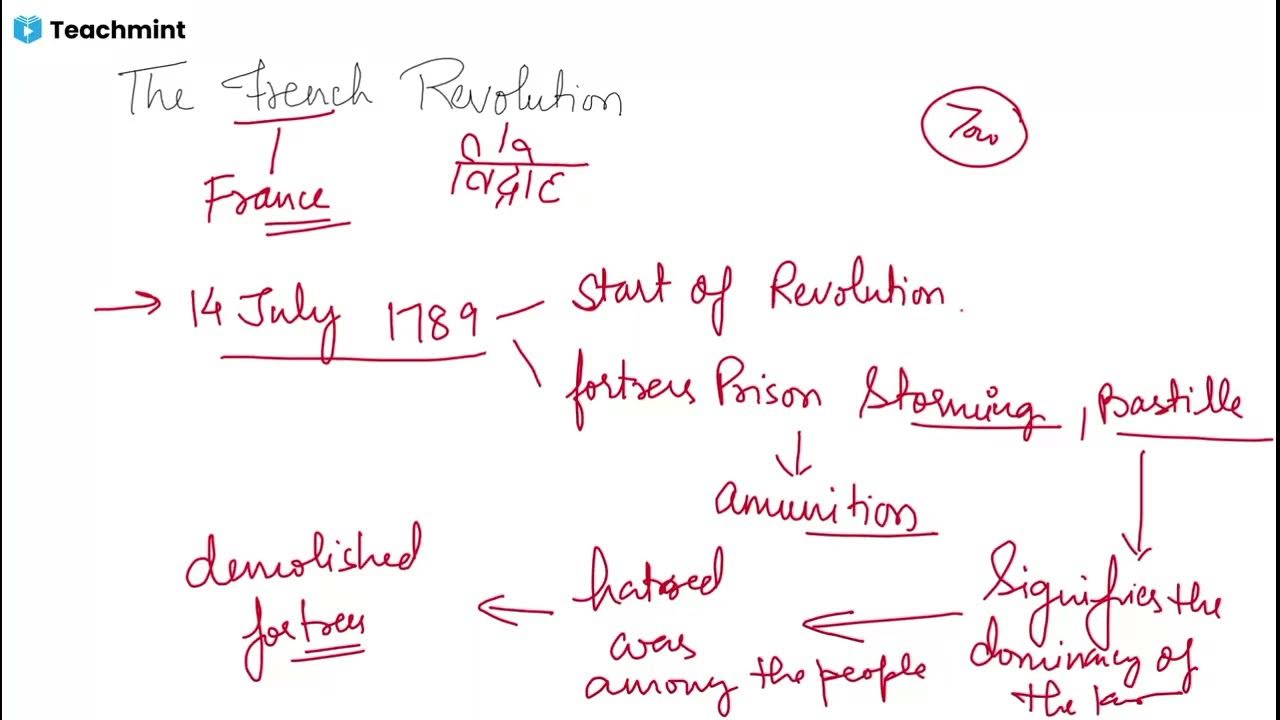 Teachmint
The French Revolution
France
14 July 1789
Start of Revolution.
fortress Prison Storming, Bastille
amunition
Signifies the
dominancy of
the
hatred
was
among the people
demolished
fortress